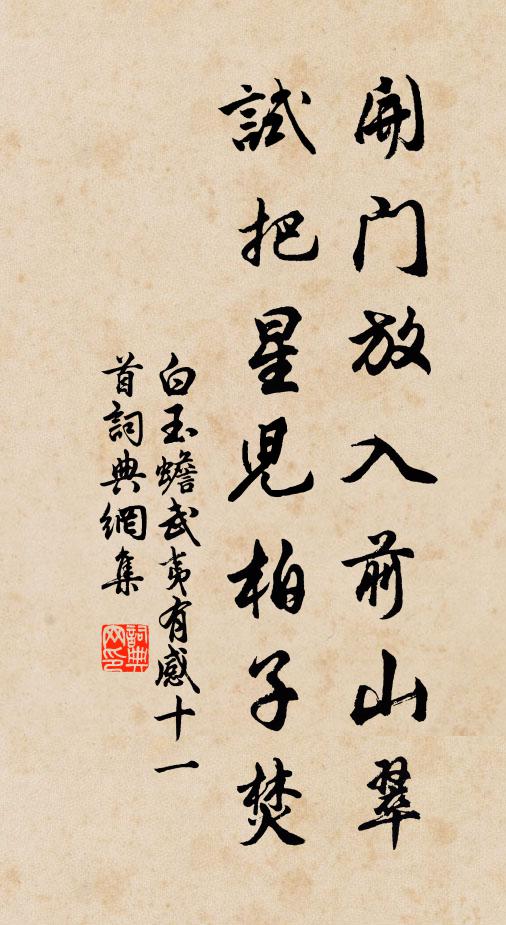 開門放入前山翠
試把星兒柏子焚
白玉蟾武夷有感十一
首詞典網集
詞典網印